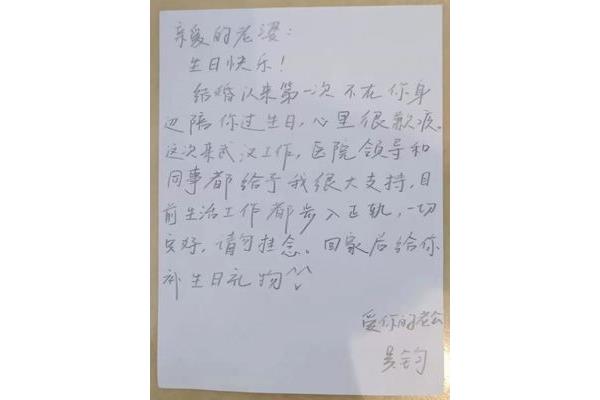 亲爱的老婆：
生日快乐！
结婚以来第一次不在你身
边陪你过生日，心里很歉疚。
这次来武汉工作，医院领导和
同事都给予我很大支持，目
前生活工作都步入正轨，一切
安好，请勿挂念。回家后给你
补生日礼物^^
爱你的老公
吴钧